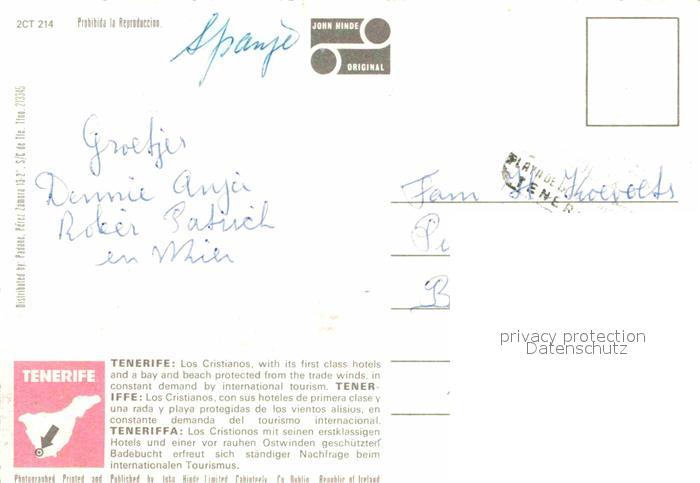 2CT 214 Prohibida la Reproduccion.
Spanje
JOHN HINDE
ORIGINAL
Distributed by: Padane, Pérez Zamora 13-2° S/C de Tfe. Tfno. 213345
Groetjes
Dennie Anja
en
PLAYA DE
TENER
Fam
B
privacy protection
Datenschutz
TENERIFE
TENERIFE: Los Cristianos, with its first class hotels
and a bay and beach protected from the trade winds, in
constant demand by international tourism. TENER-
IFFE: Los Cristianos, con sus hoteles de primera clase y
una rada y playa protegidas de los vientos alisios, en
constante demanda del turismo internacional.
TENERIFFA: Los Cristionos mit seinen erstklassigen
Hotels und einer vor rauhen Ostwinden geschützten
Badebucht erfreut sich ständiger Nachfrage beim
internationalen Tourismus.
Photographed Printed and Published by John Hinde Limited Cabinteely, Co Dublin, Republic of Ireland